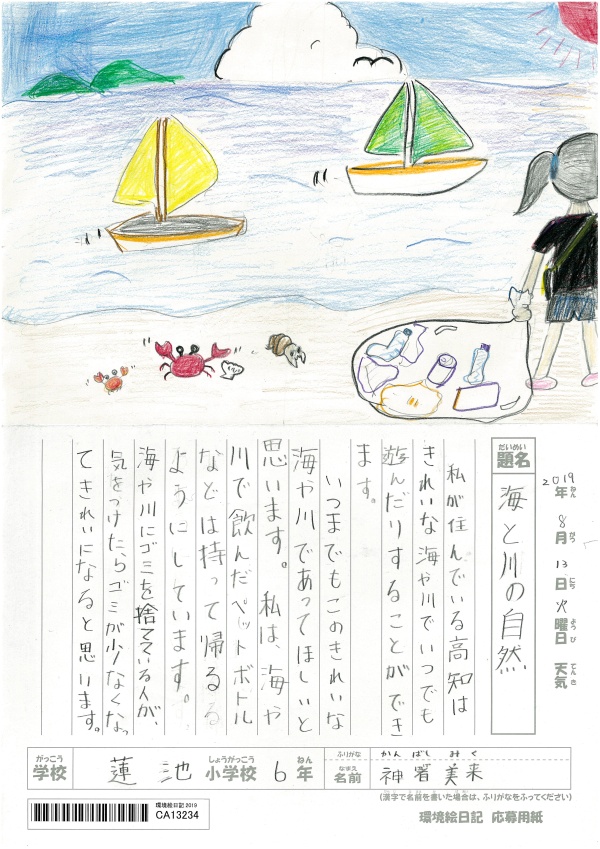 2019年 8月 13日 火曜日 天気
ねん がつ にち ようび てんき
だいめい
題名 海と川の自然
私が住んでいる高知は
きれいな海や川でいつでも
遊んだりすることができ
ます。
いつまでもこのきれいな
海や川であってほしいと
思います。私は、海や
川で飲んだペットボトル
などは持って帰る
ようにしています。
海や川にゴミを捨てている人が、
気をつけたらゴミが少なくなっ
てきれいになると思います。
がっこう しょうがっこう ねん
学校 蓮池 小学校 6年
ふりがな かんばし みく
なまえ
名前 神署美来
(漢字で名前を書いた場合は、ふりがなをふってください)
環境絵日記2019
CA13234
環境絵日記 応募用紙